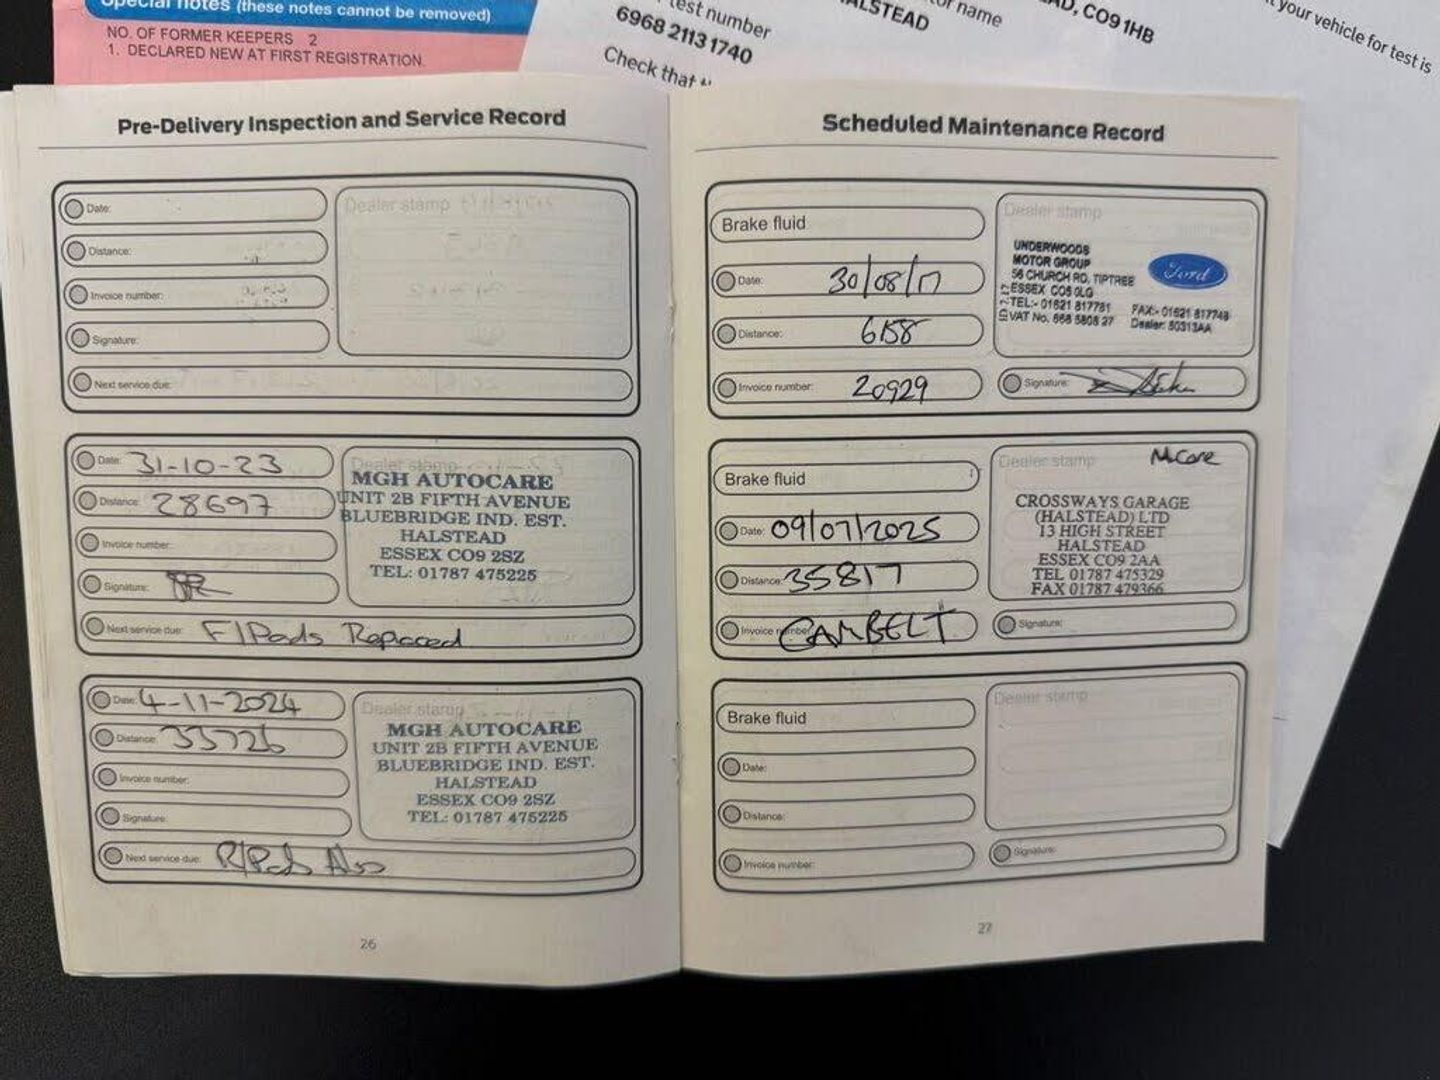 Special notes (these notes cannot be removed)
NO. OF FORMER KEEPERS 2
1. DECLARED NEW AT FIRST REGISTRATION.
test number
6968 2113 1740
Check that
HALSTEAD
or name
CO9 1HB
your vehicle for test is
Pre-Delivery Inspection and Service Record
Date:
Distance:
Invoice number:
Signature:
Next service due:
Dealer stamp
Date: 31-10-23
Distance: 28697
Invoice number:
Signature:
Next service due: F/Pads Replaced
Dealer stamp
MGH AUTOCARE
UNIT 2B FIFTH AVENUE
BLUEBRIDGE IND. EST.
HALSTEAD
ESSEX CO9 2SZ
TEL: 01787 475225
Date: 4-11-2024
Distance: 33726
Invoice number:
Signature:
Next service due: R/Pads Also
Dealer stamp
MGH AUTOCARE
UNIT 2B FIFTH AVENUE
BLUEBRIDGE IND. EST.
HALSTEAD
ESSEX CO9 2SZ
TEL: 01787 475225
26
Scheduled Maintenance Record
Brake fluid
Date: 30/08/17
Distance: 6158
Invoice number: 20929
Dealer stamp
UNDERWOODS
MOTOR GROUP
56 CHURCH RD, TIPTREE
ESSEX CO5 0LG
TEL:- 01621 817781 FAX:- 01621 817748
VAT No. 868 5808 27 Dealer: 50313AA
Ford
Signature:
Brake fluid
Date: 09/07/2025
Distance: 35817
Invoice number: CAMBELT
Dealer stamp
CROSSWAYS GARAGE
(HALSTEAD) LTD
13 HIGH STREET
HALSTEAD
ESSEX CO9 2AA
TEL 01787 475329
FAX 01787 479366
Signature:
Brake fluid
Date:
Distance:
Invoice number:
Dealer stamp
Signature:
27